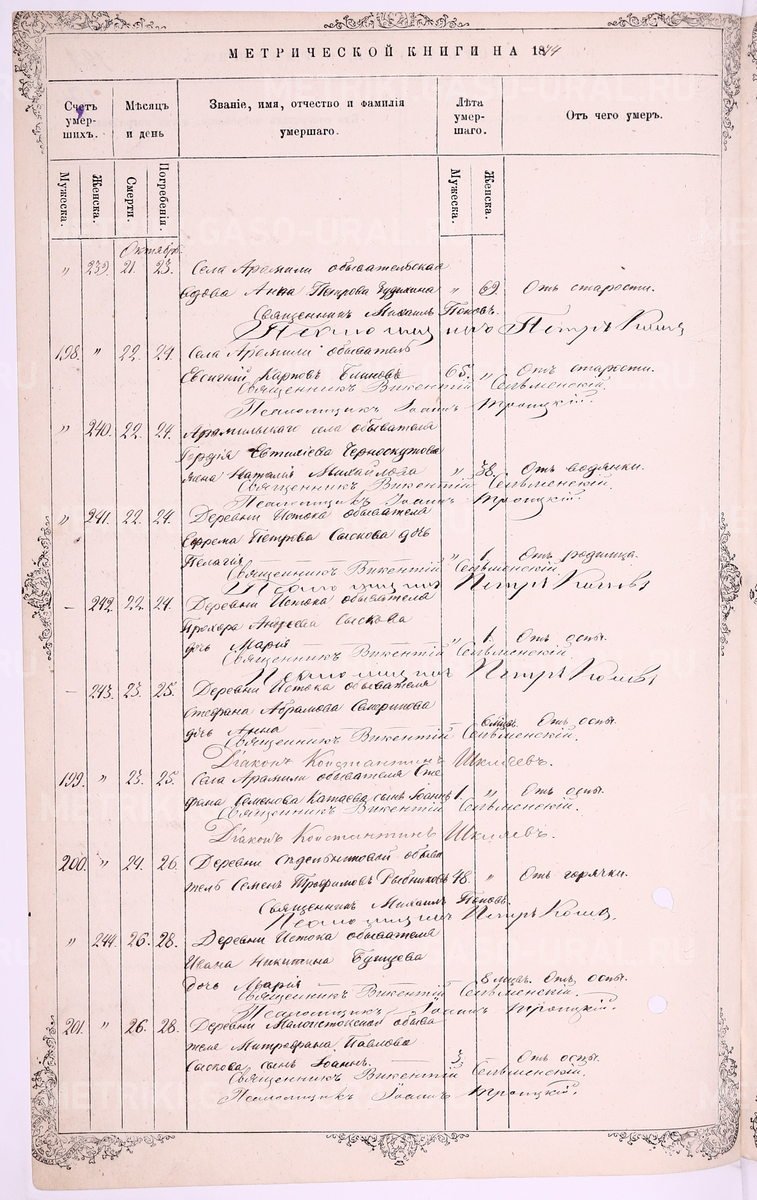 МЕТРИЧЕСКОЙ КНИГИ НА 1874
Счетъ умер- шихъ. Мѣсяцъ и день Званіе, имя, отчество и фамилія умершаго. Лѣта умер- шаго. Отъ чего умеръ.
Мужеска. Женска. Смерти. Погребенія. Мужеска. Женска.
Октября.
" 239. 21. 23. Села Арамили обывательская
вдова Анна Петрова " 69. Отъ старости.
Священникъ Михаилъ Поповъ.
Псаломщикъ Петръ
198. " 22. 24. Села Арамили обыватель
Евсигній Карповъ Блиновъ 65. " Отъ старости.
Священникъ Викентій
Псаломщикъ Іоаннъ Троицкій.
" 240. 22. 24. Арамильскаго села обывателя
Гордія Евтихіева Черноскутова
жена Наталія Михайлова " 38. Отъ водянки.
Священникъ Викентій
Псаломщикъ Іоаннъ Троицкій.
" 241. 22. 24. Деревни Истока обывателя
Ефрема Петрова Сыскова дочь
Пелагія " 1. Отъ родимца.
Священникъ Викентій
Псаломщикъ Петръ
— 242. 22. 24. Деревни Истока обывателя
Прохора Андреева Сыскова
дочь Марія " 1. Отъ оспы.
Священникъ Викентій
Псаломщикъ Петръ
— 243. 23. 25. Деревни Истока обывателя
Стефана Абрамова
дочь Анна 6 мцъв. Отъ оспы.
Священникъ Викентій
Діаконъ Константинъ Шкляевъ.
199. " 23. 25. Села Арамили обывателя Сте
фана Семенова Катаева сынъ Іоаннъ 1. " Отъ оспы.
Священникъ Викентій
Діаконъ Константинъ Шкляевъ.
200. " 24. 26. Деревни обыва
тель Семенъ Трофимовъ Рыбниковъ 48. " Отъ горячки.
Священникъ Михаилъ Поповъ.
Псаломщикъ Петръ
" 244. 26. 28. Деревни Истока обывателя
Ивана Никитина
дочь Марія 8 мцъв. Отъ оспы.
Священникъ Викентій
Псаломщикъ Іоаннъ Троицкій.
201. " 26. 28. Деревни Малоистокской обыва
теля Митрофана Павлова
Сыскова сынъ Іоаннъ. 3. Отъ оспы.
Священникъ Викентій
Псаломщикъ Іоаннъ Троицкій.